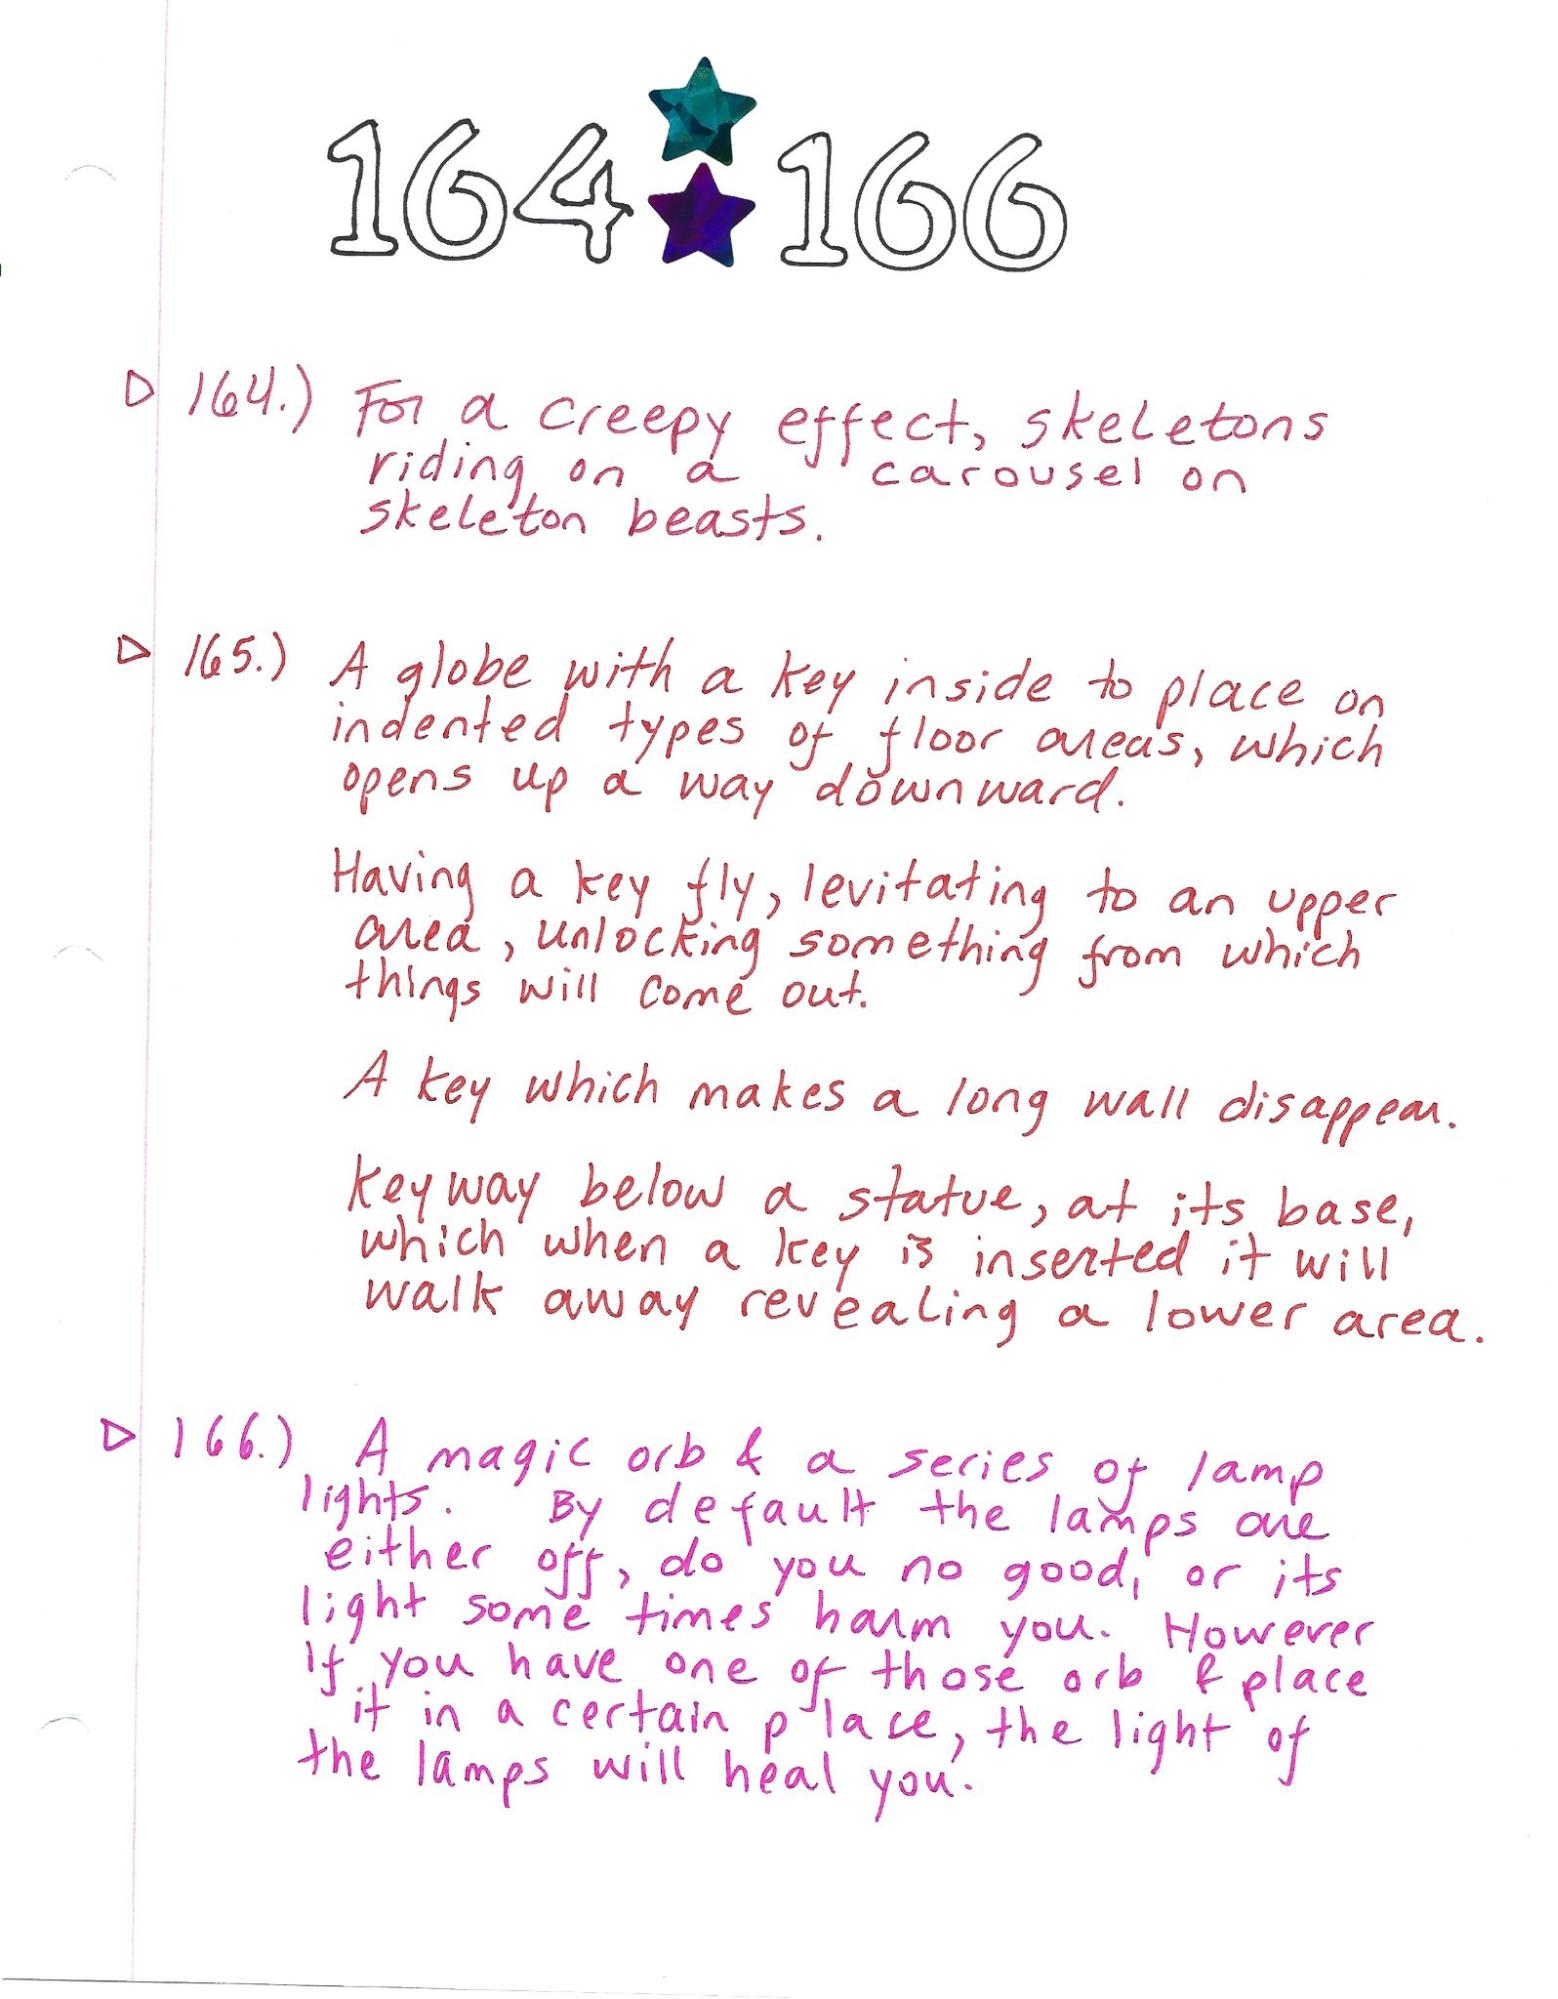 164 166
▷ 164.) For a creepy effect, skeletons
riding on a carousel on
skeleton beasts.
▷ 165.) A globe with a key inside to place on
indented types of floor areas, which
opens up a way downward.
Having a key fly, levitating to an upper
area, unlocking something from which
things will come out.
A key which makes a long wall disappear.
Keyway below a statue, at its base,
which when a key is inserted it will
walk away revealing a lower area.
▷ 166.) A magic orb & a series of lamp
lights. By default the lamps are
either off, do you no good, or its
light some times harm you. However
if you have one of those orb & place
it in a certain place, the light of
the lamps will heal you.